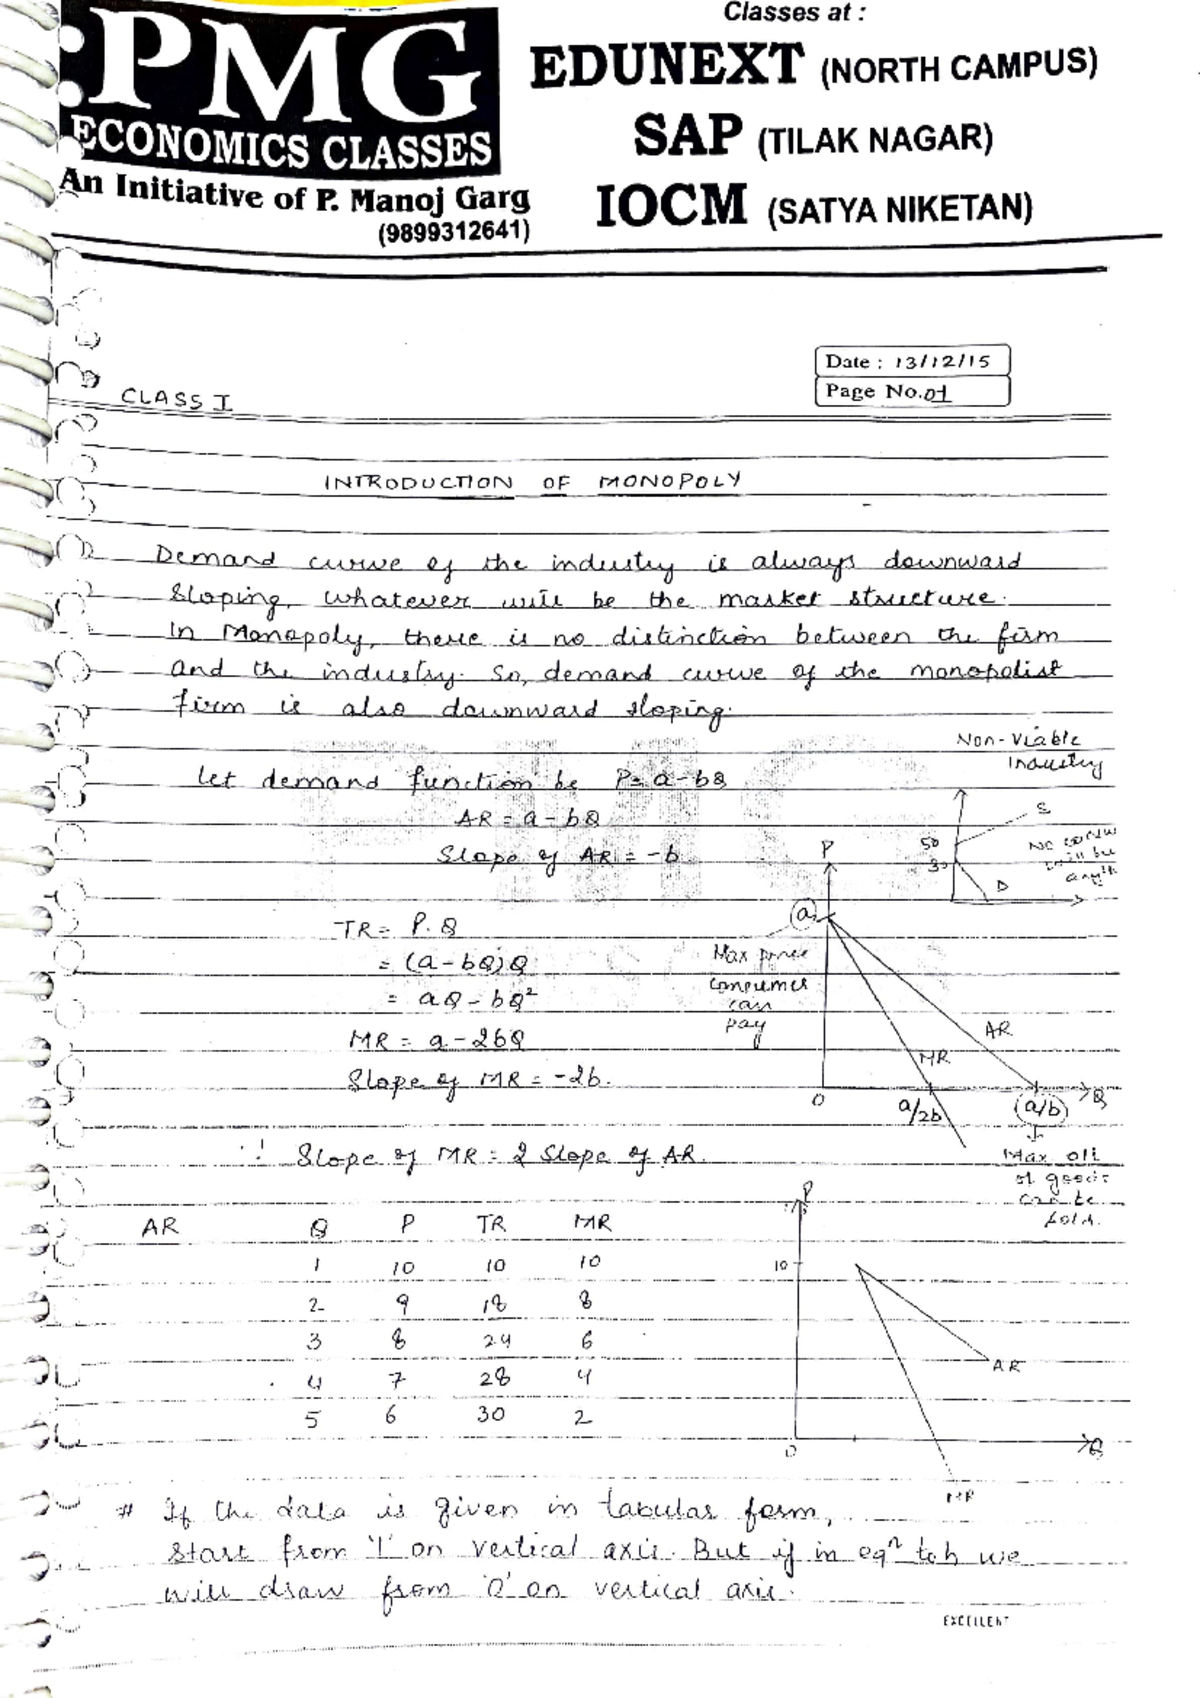 Classes at :
PMG
ECONOMICS CLASSES
An Initiative of P. Manoj Garg
(9899312641)
EDUNEXT (NORTH CAMPUS)
SAP (TILAK NAGAR)
IOCM (SATYA NIKETAN)
Date : 13/12/15
Page No.01
CLASS I
INTRODUCTION OF MONOPOLY
Demand curve of the industry is always downward
sloping, whatever will be the market structure.
In Monopoly, there is no distinction between the firm
and the industry. So, demand curve of the monopolist
firm is also downward sloping.
Non-Viable
Industry
let demand function be P= a-bQ
AR = a-bQ
Slope of AR = -b
S
50
30
D
No
will be
P
a
Max price
consumer
can
pay
AR
MR
O
a/2b
a/b
Q
Max
of goods
can be
sold.
TR = P.Q
= (a-bQ)Q
= aQ-bQ²
MR = a-2bQ
Slope of MR = -2b.
Slope of MR = 2 Slope of AR.
AR Q P TR MR
1 10 10 10
2 9 18 8
3 8 24 6
4 7 28 4
5 6 30 2
P
10
AR
O
Q
MR
# If the data is given in tabular form,
start from '1' on vertical axis. But if in eqⁿ toh we
will draw from '0' on vertical axis.
EXCELLENT